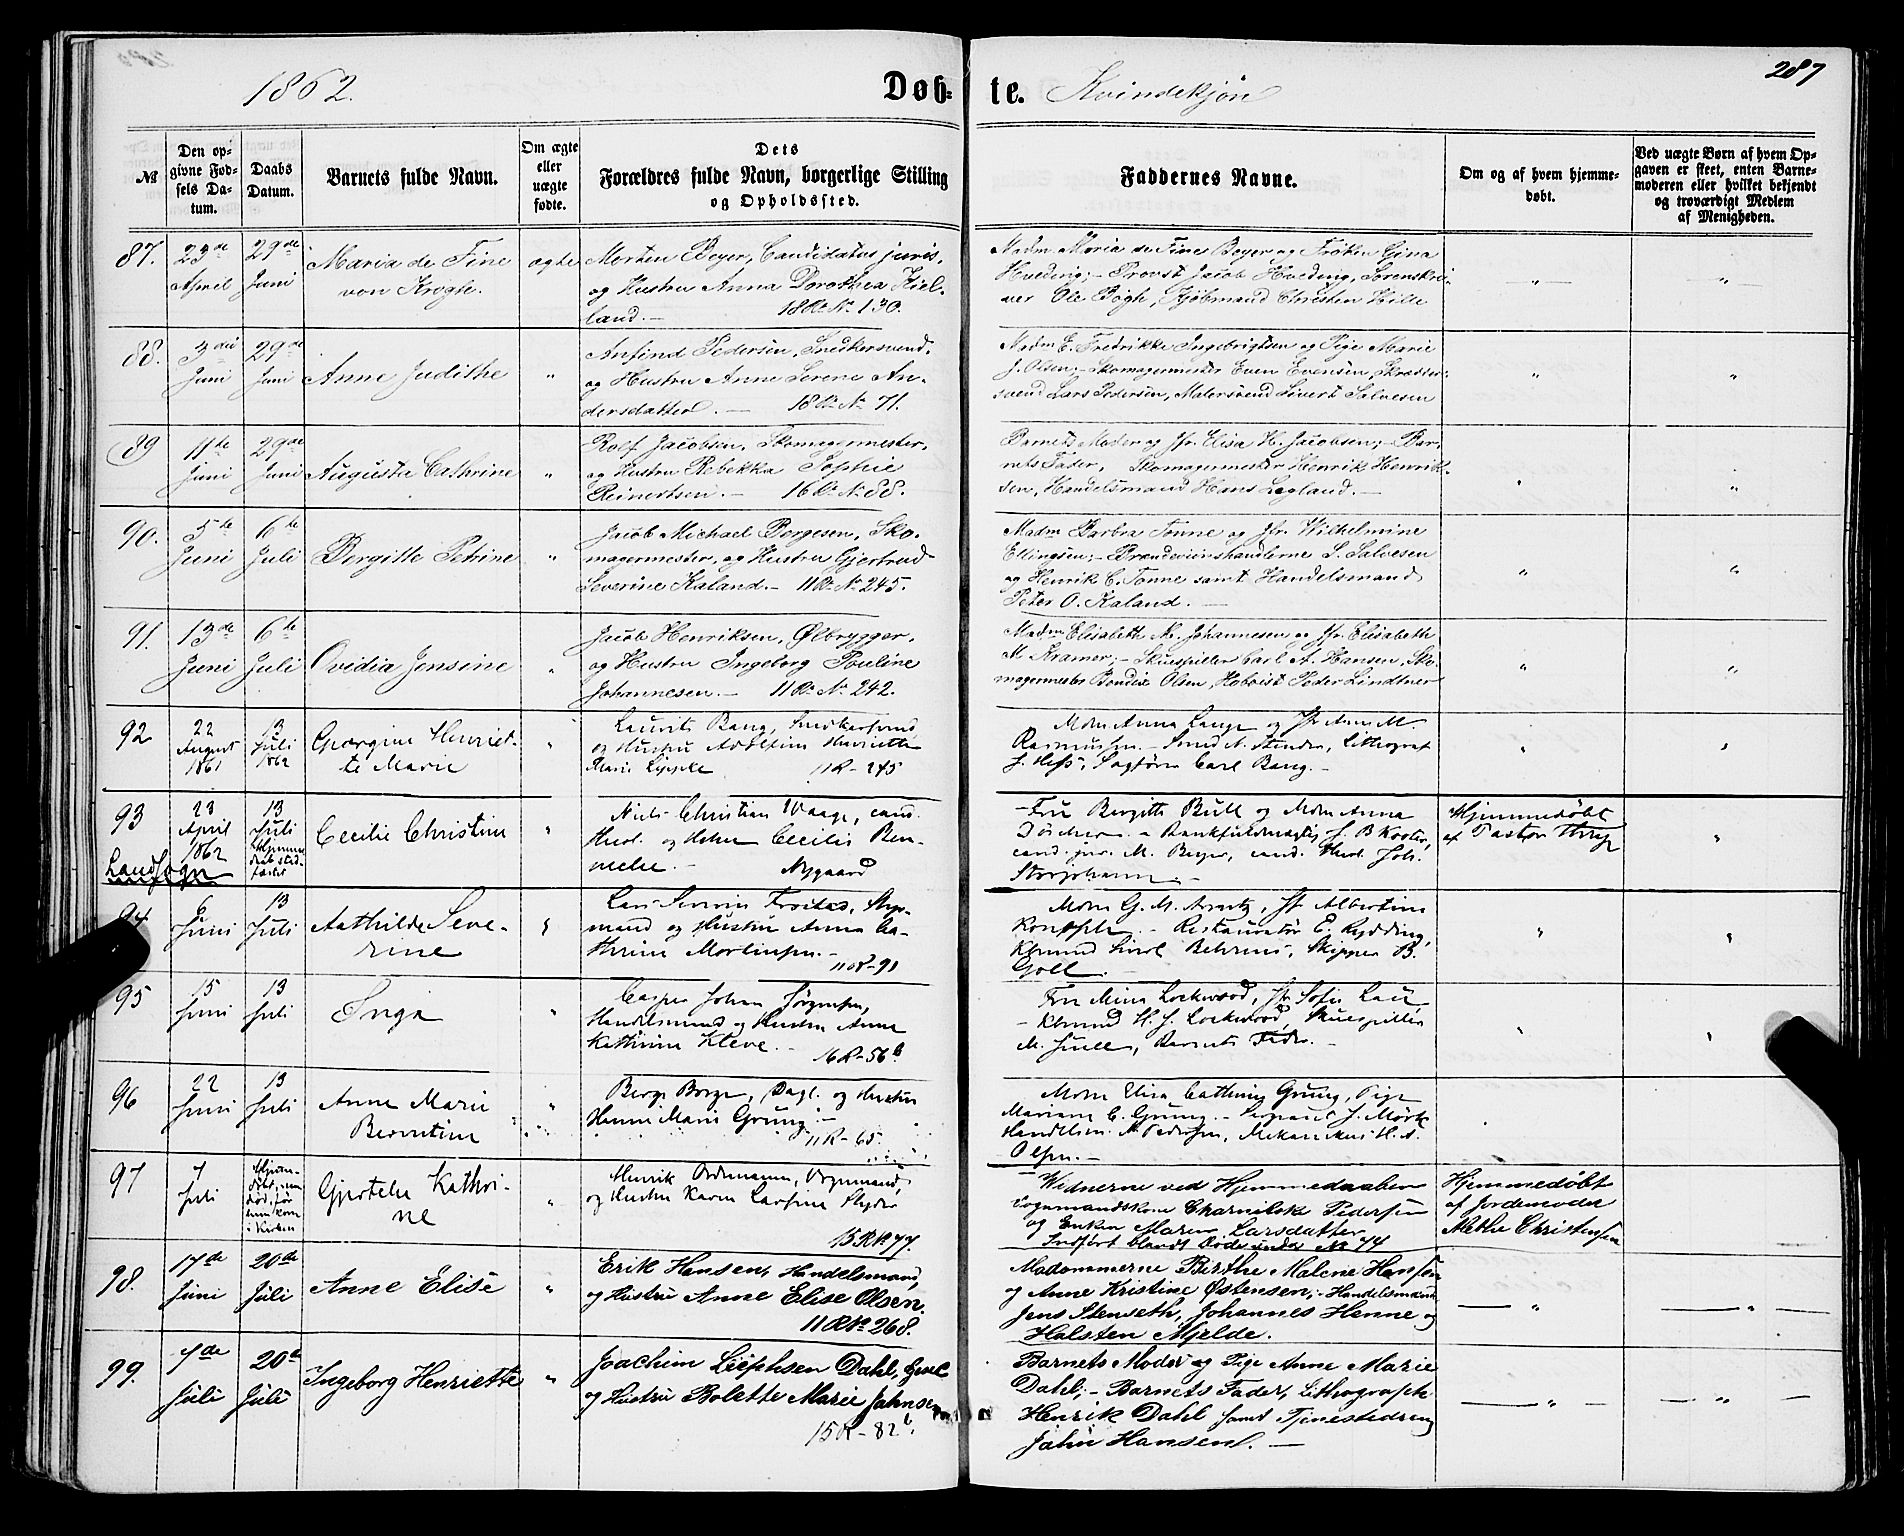 1862.
Døb-
te. Kvindekjøn
287
№
Den op-
givne Fød-
sels Da-
tum.
Daabs
Datum.
Barnets fulde Navn.
Om ægte
eller
uægte
fødte.
Dets
Forældres fulde Navn, borgerlige Stilling
og Opholdssted.
Faddernes Navne.
Om og af hvem hjemme-
døbt.
Ved uægte Børn af hvem Op-
gaven er skeet, enten Barne-
moderen eller hvilket bekjendt
og troværdigt Medlem
af Menigheden.
87.
23de
April
29de
Juni
Maria de Fine
von Krogh.
ægte
Morten Beyer, Candidatus juris,
og Hustru Anna Dorothea Kiel-
land. — 18 R. № 130.
Madm Maria de Fine Beyer og Frøken Gina
Hveding; - Provst Jacob Hveding, Sorenskri-
ver Ole Bøgh, Kjøbmand Christen
88.
3die
Juni
29de
Juni
Anne Judithe
"
Anfind Pedersen, Snedkersvend,
og Hustru Anne Serene An-
dersdatter. — 18 R. № 71.
Madm E. Fredrikke Ingebrigtsen og Pige Marie
J. Olsen; - Skomagermester Even Evensen, Skrædder-
svend Lars Pedersen, Malersvend Sivert Salvesen
89
11te
Juni
29de
Juni
Augusta Cathrine
"
Rolf Jacobsen, Skomagermester,
og Hustru Ribekka Sophie
Reinertsen. — 16 R. № 88.
Barnets Moder og Jfr. Elisa H. Jacobsen; - Bar-
nets Fader, Skomagermester Henrik Henrik-
sen, Handelsmand Hans Legland. —
90.
5te
Juni
6te
Juli
Bergitte Petrine
"
Jacob Michael Børgesen, Sko-
magermester, og Hustru Gjertrud
Severine Kaland. - 11 R. № 245.
Madm Barbra Tonne og Jfr. Wilhelmine
Ellingsen; - Brændeviinshandlerne S. Salvesen
og Henrik C. Tonne samt Handelsmand
Peter O. Kaland. —
91.
13de
Juni
6te
Juli
Ovidia Jensine
"
Jacob Henriksen, Ølbrygger,
og Hustru Ingeborg Pouline
Johannesen. — 11 R. № 242.
Madm Elisabeth M. Johannesen og Jfr. Elisabeth
M. Kramer; - Skuespiller Carl A. Hansen, Sko-
magermester Bendix Olsen, Hoboist Peder Lindtner
92
22
August
1861
13
Juli
1862
Georgine Henriet-
te Marie
"
Laurits Bang, Snedkersvend
og Hustru Adolfine Henriette
Marie Lippke 11 R - 245
Mdm Anna Lange og Jfr Anne M.
Rasmussen. - Smed N. Stender, Lithograf
J. Hess, Sagfører Carl Bang. -
93
23
April
1862
13
Juli
Hjemme
daab stad-
fæstet
Cecilie Christine
"
Niels Christian Waage, cand.
theol. og Hustru Cecilie Ren-
Nygaard
Fru Bergitte Bull og Mdm Anna
cand. jur. M. Beyer, cand. theol. Joh.
Storjohann. -
Hjemmedøbt
af Pastor
Landsogn
94
6
Juni
13
Juli
Mathilde Seve-
rine
"
Lars Severin Frostad, Styr-
mand og Hustru Anna Ca-
thrine Mortensen. -
11 R - 91
Mdm G. M. Arentz, Jfr Albertine
Restauratør E. Rydding,
Kbmand Behrens, Skipper B.
Goll.
95
15
Juni
13
Juli
Inga
"
Casper Johan Jørgensen,
Handelsmand og Hustru Anna
Kathrine Kleve. -
16 R - 56 b
Fru Mina Lockwood, Jfr Sofie Lau,
- Kbmand H. J. Lockwood, Skuespiller
M. Juell, Barnets Fader. -
96
22
Juni
13
Juli
Anne Marie
Berentine
"
Berge Borge, Dagl. og Hustru
Hanne Marie Grung -
11 R - 65
Mdm Elisa Cathrine Grung, Pige
Mariane C. Grung. - Sergeant J. Mørk
Handelsm. M. Pedersen, Mekanikus H. A.
Olsen. -
97
7
Juli
Hjem-
døbt, men
død, før
den kom
i Kirken
Gjertelie Kathri-
ne
"
Henrik Ordemann, Vognmand,
og Hustru Karen Larsine
15 R № 77.
Vidnerne ved Hjemmedaaben
Vognmandskone Pedersen
og Enken Maren Larsdatter
Indført blandt Døde under № 74
Hjemmedøbt
af Jordemoder
Mathe Christensen
98.
17de
Juni
20de
Juli
Anne Elise
"
Erik Hansen, Handelsmand,
og Hustru Anne Elise Olsen.
11 R № 268.
Madammerne Birthe Malene Hansen
og Anne Kristine Østensen; - Handelsmænd
Jens Stenseth, Johannes Henne og
Halsten Mjelde.
99.
7de
Juli
20de
Juli
Ingeborg Henriette
"
Joachim Dahl,
og Hustru Bolette Marie Jahnsen
15 R - 82 b.
Barnets Moder og Pige Anne Marie
Dahl; - Barnets Fader, Lithograph
Henrik Dahl samt Tjenestedreng
Jahn Hansen. —